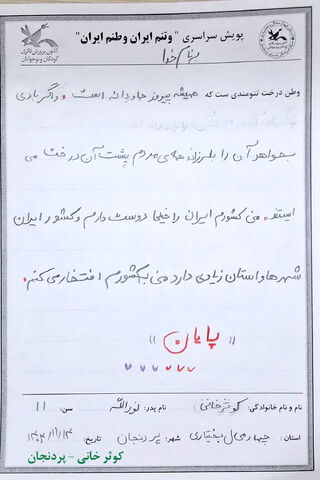 پویش سراسری " وتنم ایران وطنم ایران "
کانون پرورش فکری
کودکان و نوجوانان
بنام خدا
وطن درخت تنومندی ست که همیشه پیروز جاودانه است و اگر بادی
بخواهد آن را بلرزاند همه‌ی مردم پشت آن درخت می
ایستند. من کشورم ایران را خیلی دوست دارم و کشور ایران
شهرها و استان زیادی دارد من به کشورم افتخار می کنم.
(( پایان ))
نام و نام خانوادگی: کوثر خانی نام پدر: نوراللّه سن: 11
استان: چهارمحال بختیاری شهر: پردنجان تاریخ:
کوثر خانی - پردنجان